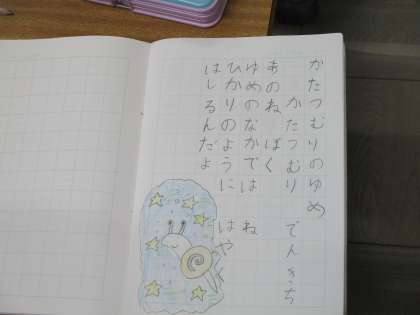 かたつむりのゆめ
かたつむり でんきち
あのね ぼく
ゆめのなかでは ね
ひかりのように はやく
はしるんだよ